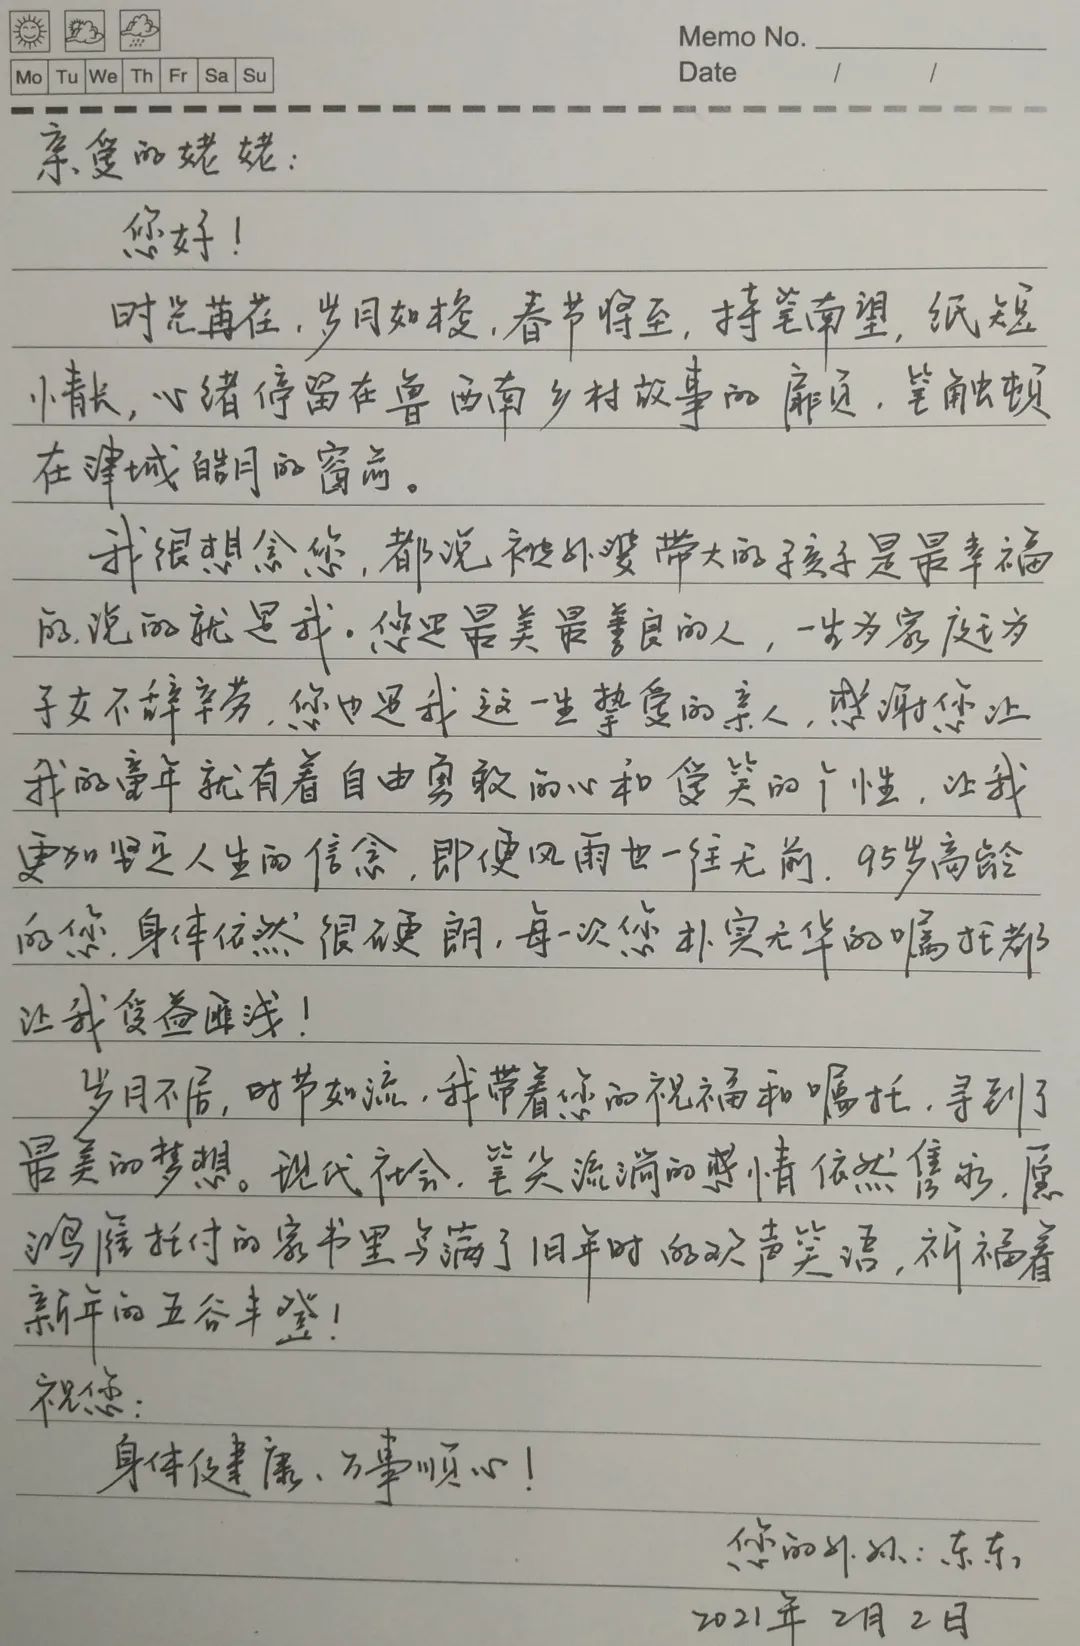 Memo No.
Mo Tu We Th Fr Sa Su
Date / /
亲爱的姥姥：
您好！
时光苒荏，岁月如梭，春节将至，持笔南望，纸短
情长，心绪停留在鲁西南乡村故事的扉页，笔触顿
在津城皓月的窗前。
我很想念您，都说被外婆带大的孩子是最幸福
的，说的就是我。您是最美最善良的人，一生为家庭为
子女不辞辛劳，您也是我这一生挚爱的亲人，感谢您让
我的童年就有着自由勇敢的心和爱笑的个性，让我
更加坚定人生的信念，即便风雨也一往无前。95岁高龄
的您，身体依然很硬朗，每一次您朴实无华的嘱托都
让我受益匪浅！
岁月不居，时节如流，我带着您的祝福和嘱托，寻到了
最美的梦想。现代社会，笔尖流淌的感情依然隽永，愿
鸿雁托付的家书里写满了旧年时的欢声笑语，祈福着
新年的五谷丰登！
祝您：
身体健康、万事顺心！
您的外孙：东东
2021年2月2日